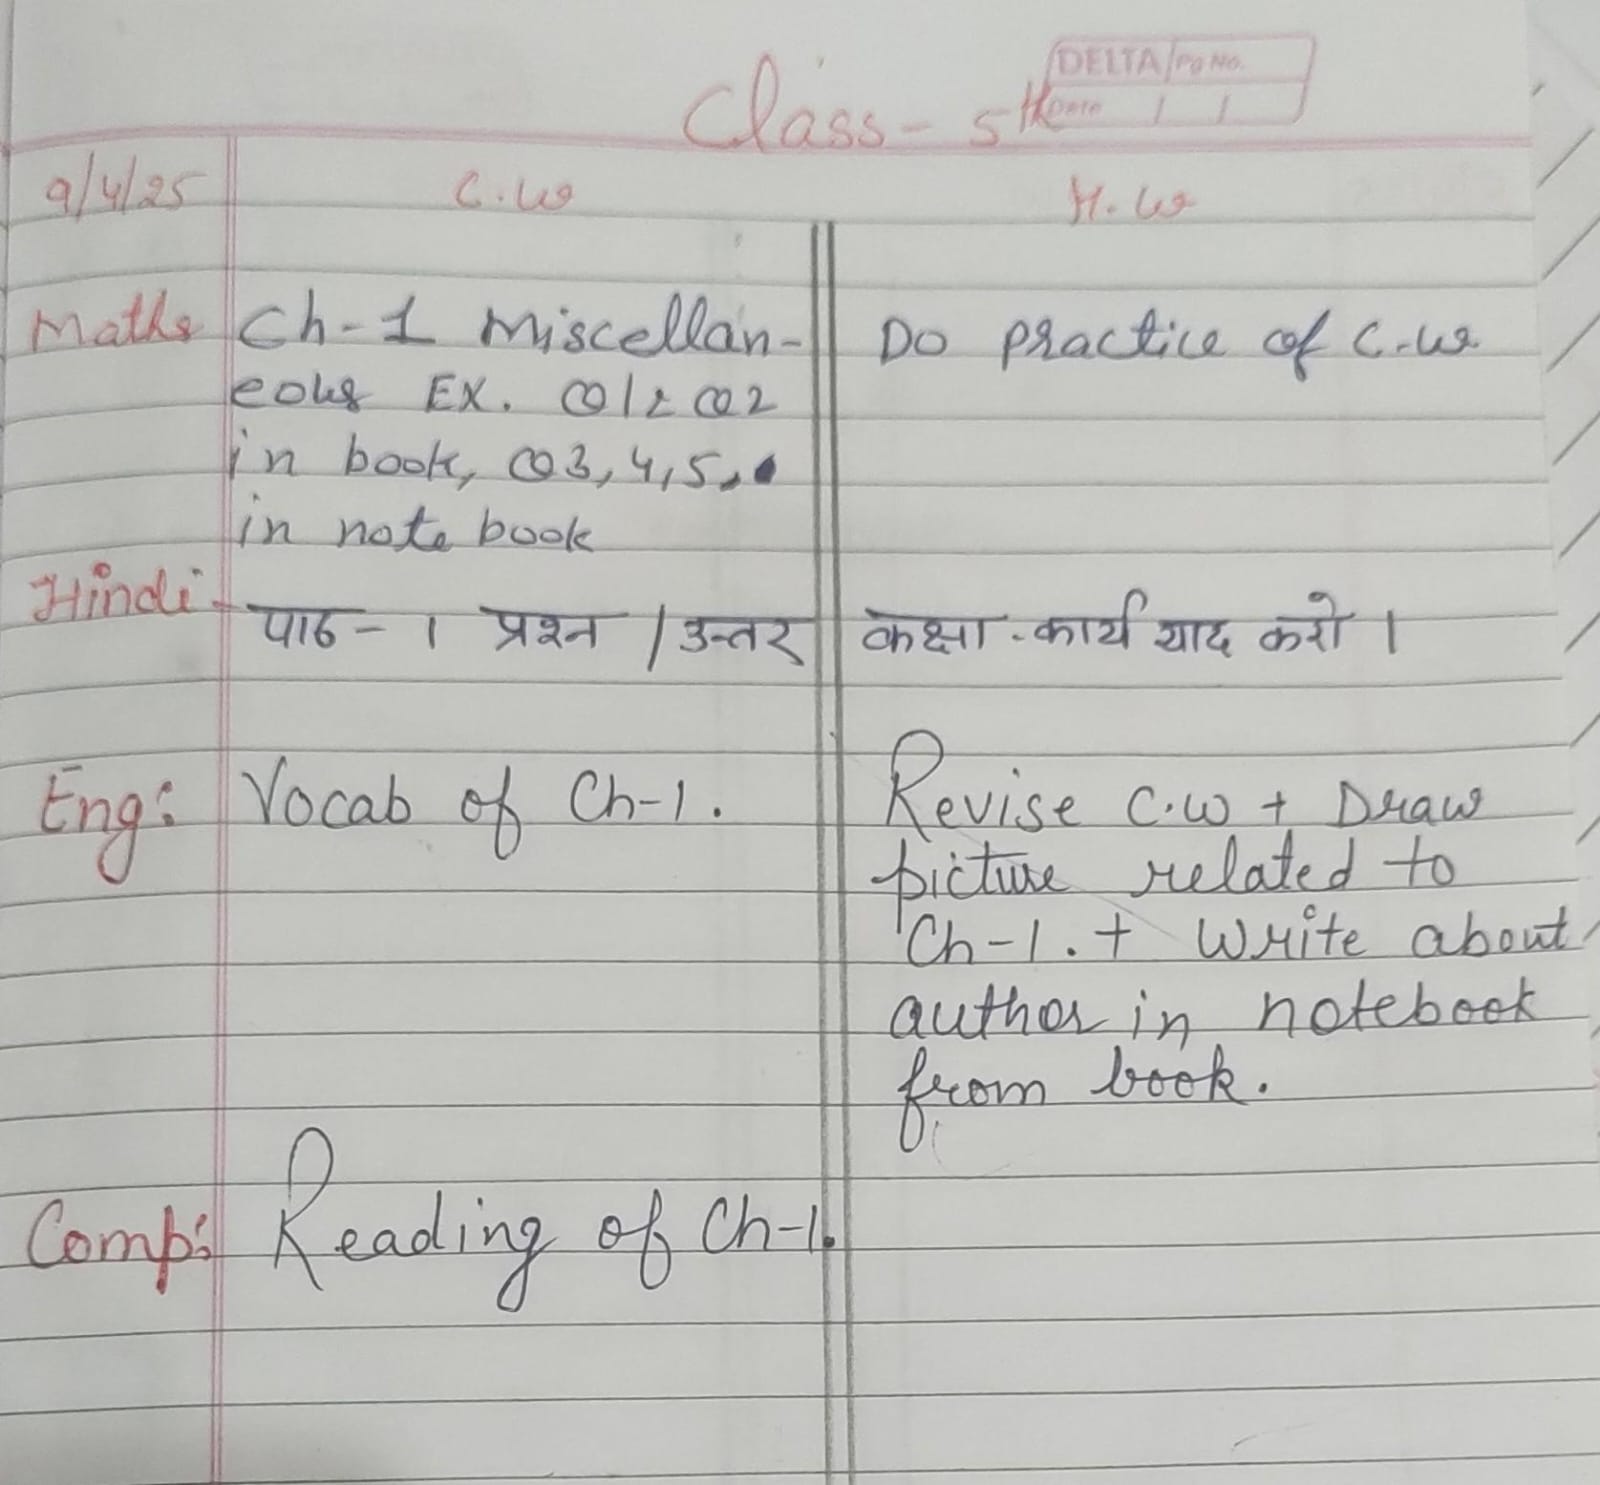 DELTA Pg No.
Class - 5th Date / /
9/4/25 C.W H.W
Maths Ch-1 Miscellan- Do practice of C.W
eous EX. Q1 & Q2
in book, Q3, 4, 5,
in note book
Hindi पाठ - 1 प्रश्न / उत्तर कक्षा - कार्य याद करो ।
Eng: Vocab of Ch-1. Revise C.W + Draw
picture related to
Ch-1. + Write about
author in notebook
from book.
Comp: Reading of Ch-1.